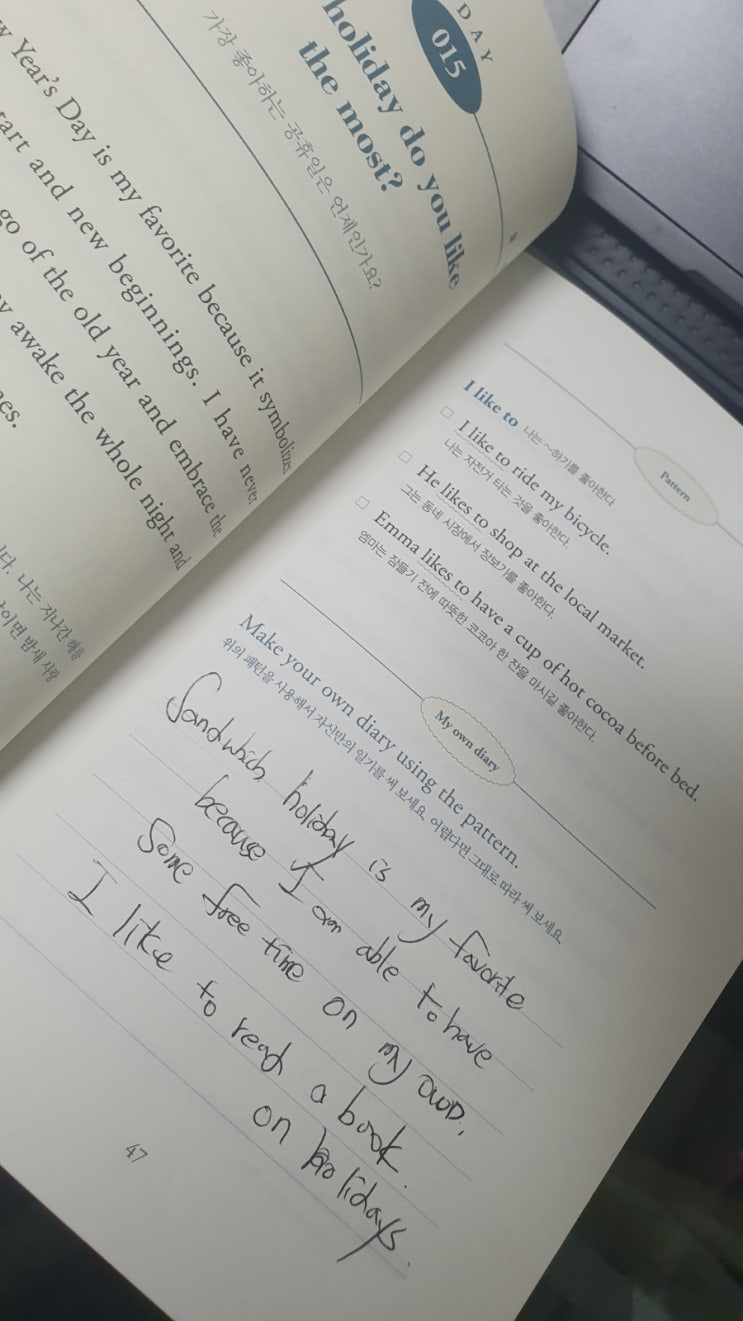 DAY
015
holiday do you like
the most?
가장 좋아하는 공휴일은 언제인가요?
Year's Day is my favorite because it symbolizes
and new beginnings. I have never
go of the old year and embrace the
awake the whole night and
나는 지나간 해를
밤새 사랑
Pattern
I like to 나는 ~하기를 좋아한다
I like to ride my bicycle.
나는 자전거 타는 것을 좋아한다.
He likes to shop at the local market.
그는 동네 시장에서 장보기를 좋아한다.
Emma likes to have a cup of hot cocoa before bed.
엠마는 잠들기 전에 따뜻한 코코아 한 잔을 마시길 좋아한다.
My own diary
Make your own diary using the pattern.
위의 패턴을 사용해서 자신만의 일기를 써 보세요. 어렵다면 그대로 따라 써 보세요.
Sandwich holiday is my favorite
because I am able to have
some free time on my own.
I like to read a book.
on holidays.
47